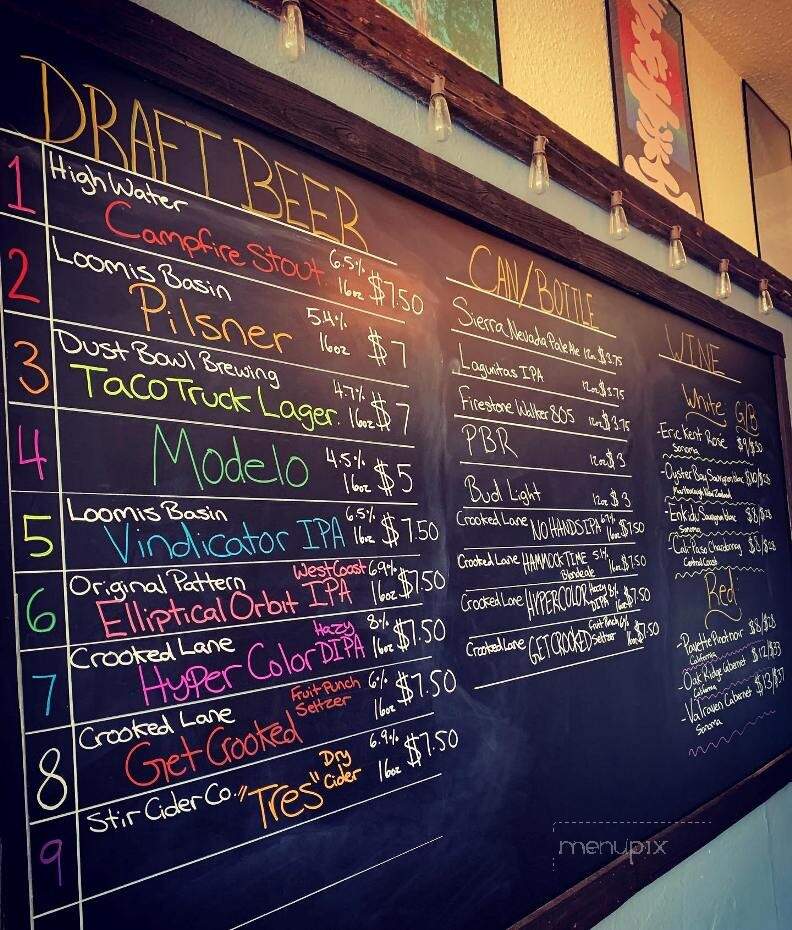 DRAFT BEER
1 High Water
Campfire Stout 6.5% 16oz $7.50
2 Loomis Basin
Pilsner 5.4% 16oz $7
3 Dust Bowl Brewing
Taco Truck Lager. 4.7% 16oz $7
4 Modelo 4.5% 16oz $5
5 Loomis Basin
Vindicator IPA 6.5% 16oz $7.50
6 Original Pattern West Coast
Elliptical Orbit IPA 6.9% 16oz $7.50
7 Crooked Lane Hazy
Hyper Color DIPA 8% 16oz $7.50
8 Crooked Lane Fruit Punch Seltzer
Get Crooked 6% 16oz $7.50
9 Stir Cider Co. "Tres" Dry Cider 6.9% 16oz $7.50
CAN/BOTTLE
Sierra Nevada Pale Ale 12oz $3.75
Lagunitas IPA 12oz $3.75
Firestone Walker 805 12oz $3.75
PBR 12oz $3
Bud Light 12oz $3
Crooked Lane NO HANDS IPA 16oz $7.50
Crooked Lane HAMMOCK TIME Blonde ale 16oz $7.50
Crooked Lane HYPERCOLOR Hazy DIPA 8% 16oz $7.50
Crooked Lane GET CROOKED Fruit Punch Seltzer 6% 16oz $7.50
WINE
White G/B
- Eric Kent Rose $9/$30
Sonoma
- Oyster Bay Sauvignon blanc
Marlborough New Zealand
- Enkidu Sauvignon blanc $8/$28
Sonoma
- Cali-Paso Chardonnay $8/$28
Central Coast
Red
- Pavette Pinot noir $8/$28
California
- Oak Ridge Cabernet $12/$33
California
- Valraven Cabernet $13/$37
Sonoma
menupix